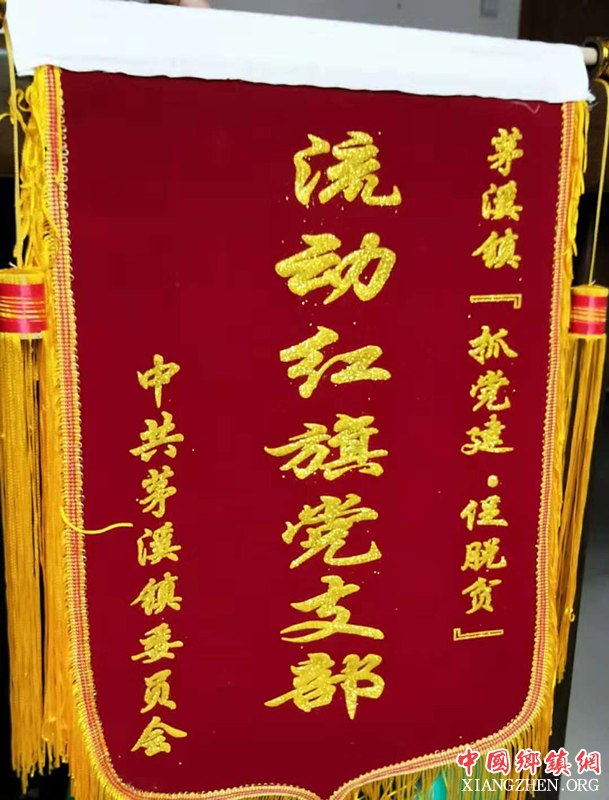 茅溪镇『抓党建·促脱贫』
流动红旗党支部
中共茅溪镇委员会
中國鄉鎮網
XIANGZHEN.ORG